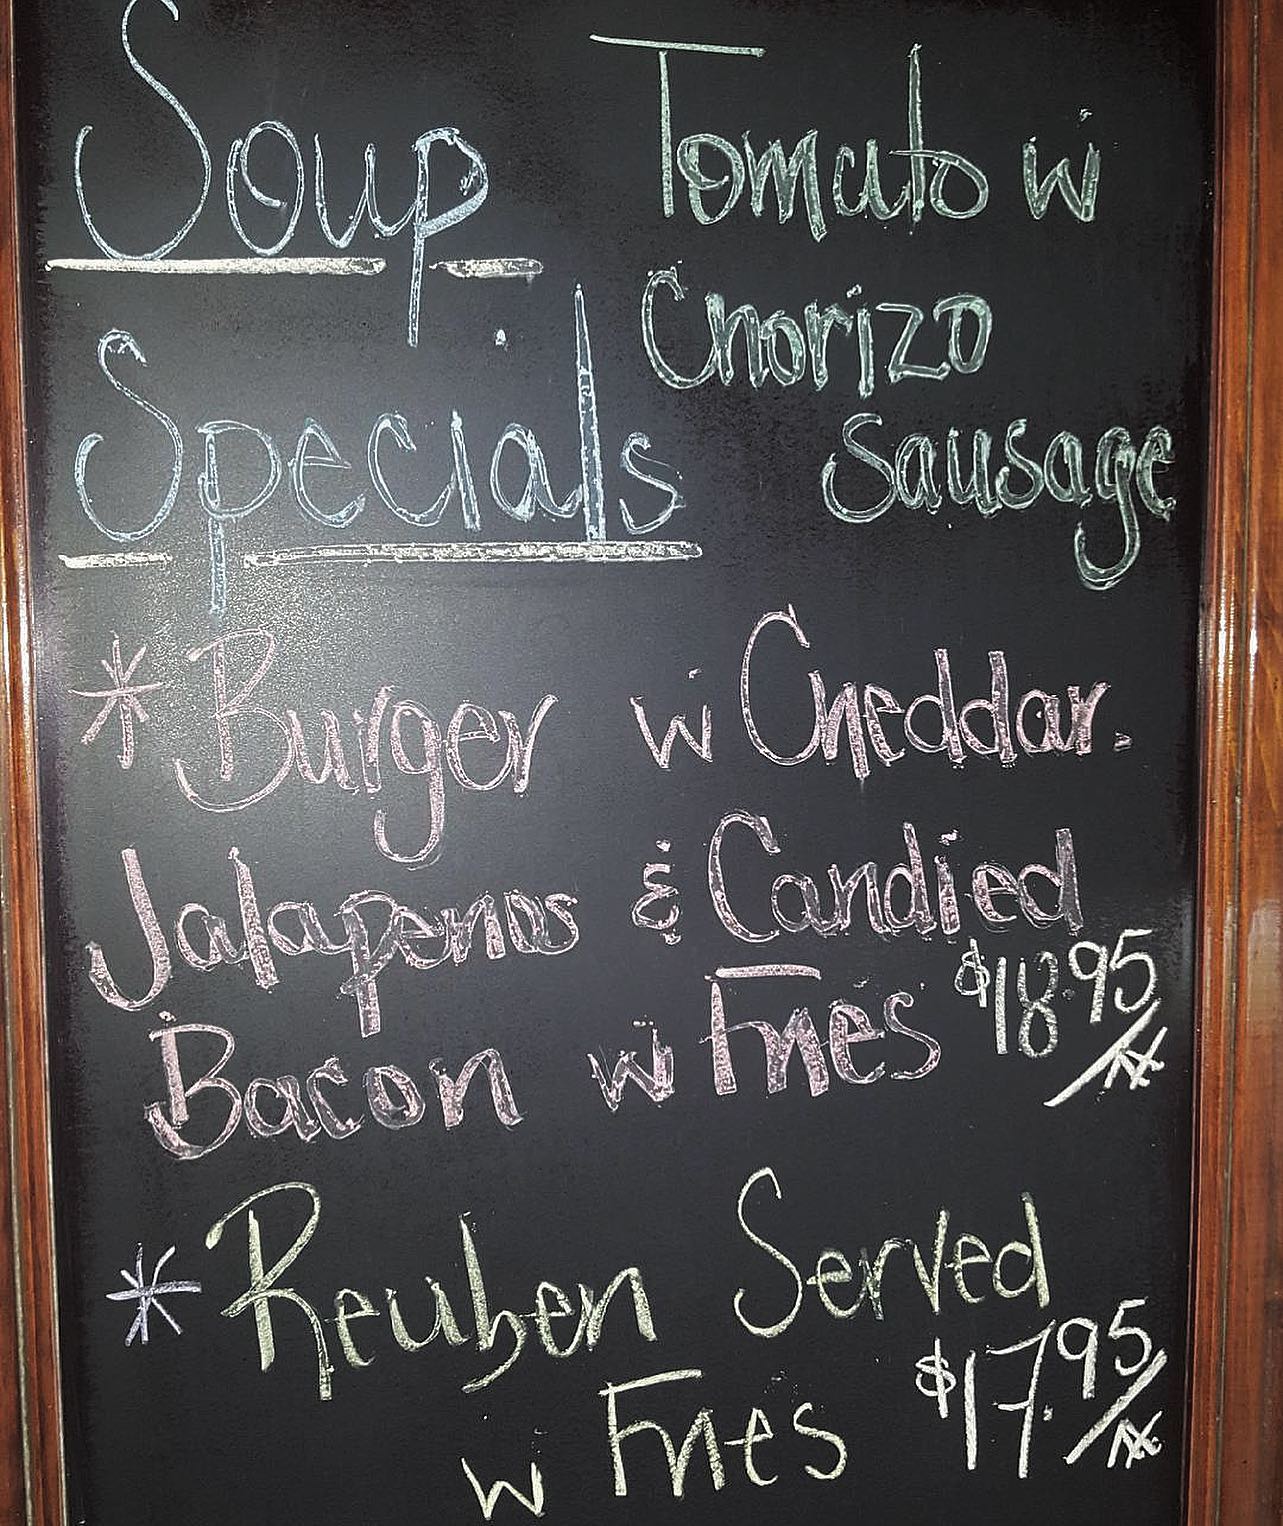 Soup Tomato w
Chorizo
Specials Sausage
* Burger w Cheddar.
Jalapenos & Candied
Bacon w Fries $18.95
* Reuben Served
w Fries $17.95